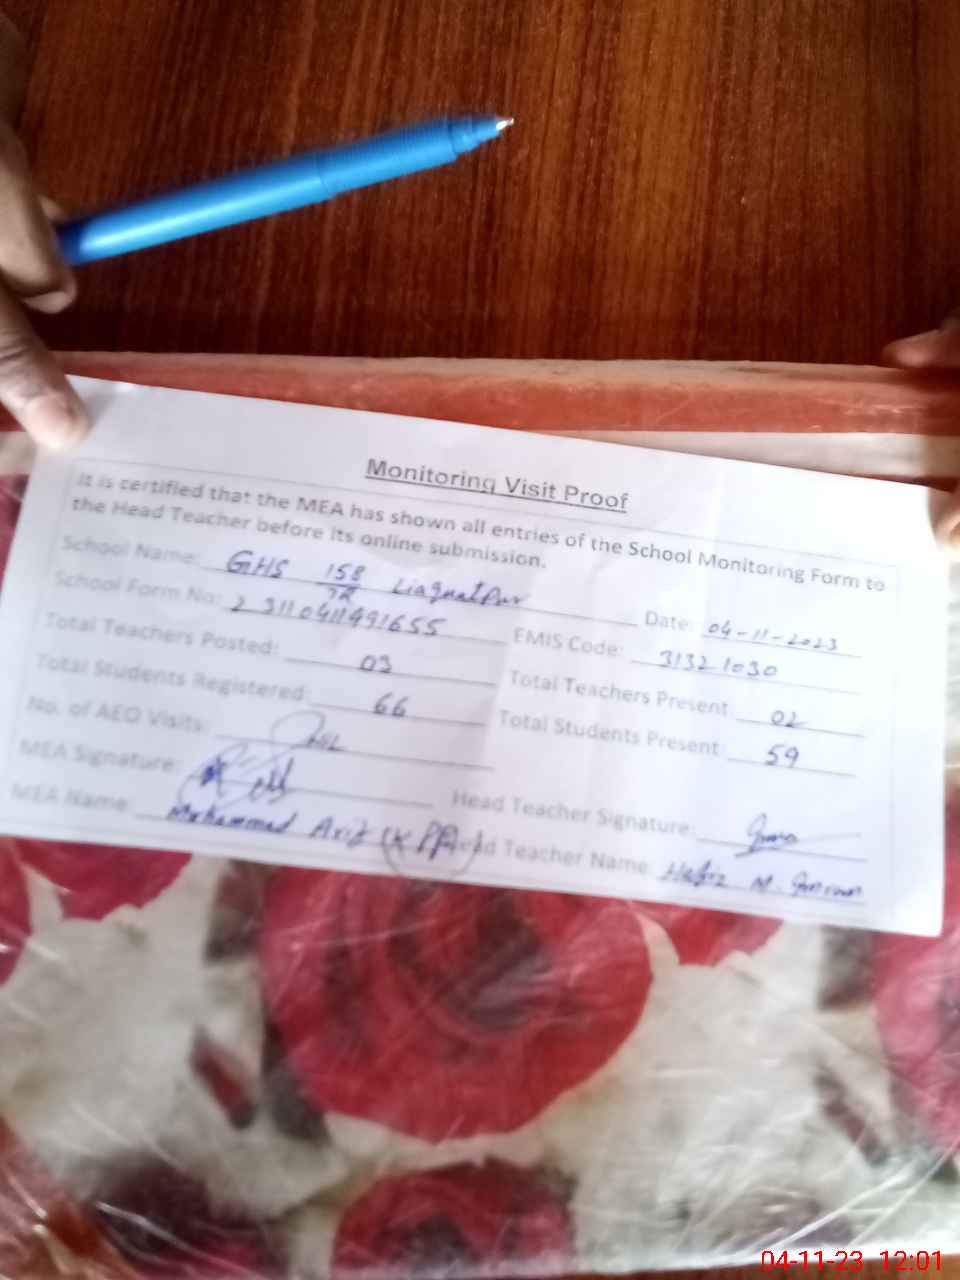 Monitoring Visit Proof
It is certified that the MEA has shown all entries of the School Monitoring Form to
the Head Teacher before its online submission.
School Name: GHS 158 Liaquatpur Date: 04-11-2023
School Form No: 2 3110411491655 EMIS Code: 31321030
Total Teachers Posted: 03 Total Teachers Present: 02
Total Students Registered: 66 Total Students Present: 59
No. of AEO Visits:
MEA Signature: Head Teacher Signature:
MEA Name: Muhammad Head Teacher Name: Hafiz M.
04-11-23 12:01